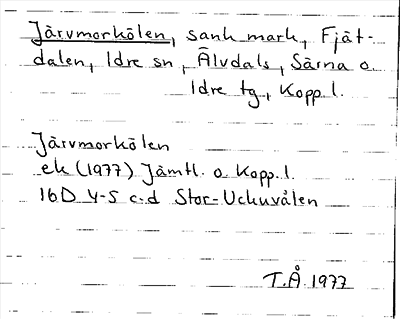 Järvmorkölen, sank mark, Fjät-
dalen, Idre sn, Älvdals, Särna o.
Idre tg, Kopp. l.
Järvmorkölen
ek (1977) Jämtl. o. Kopp. l.
16D 4-5 c-d Stor-Uckuvålen
T.Å. 1977